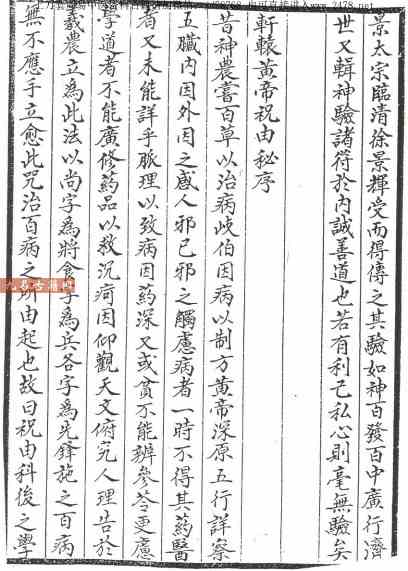 景太宗臨清徐景輝受而得傳之其驗如神百發百中廣行濟
世又輯神驗諸符於內誠善道也若有利己私心則毫無驗矣
軒轅黃帝祝由秘序
昔神農嘗百草以治病岐伯因病以制方黃帝深原五行詳察
五臟內因外因之感人邪已邪之觸慮病者一時不得其葯醫
者又未能詳乎脈理以致病因葯深又或貧不能辨參苓更慮
學道者不能廣修葯品以救沉疴因仰觀天文俯究人理告於
羲農立為此法以尚字為將食字為兵各字為先鋒施之百病
無不應手立愈此咒治百病之所由起也故曰祝由科後之學
可直接进入www.2478.net